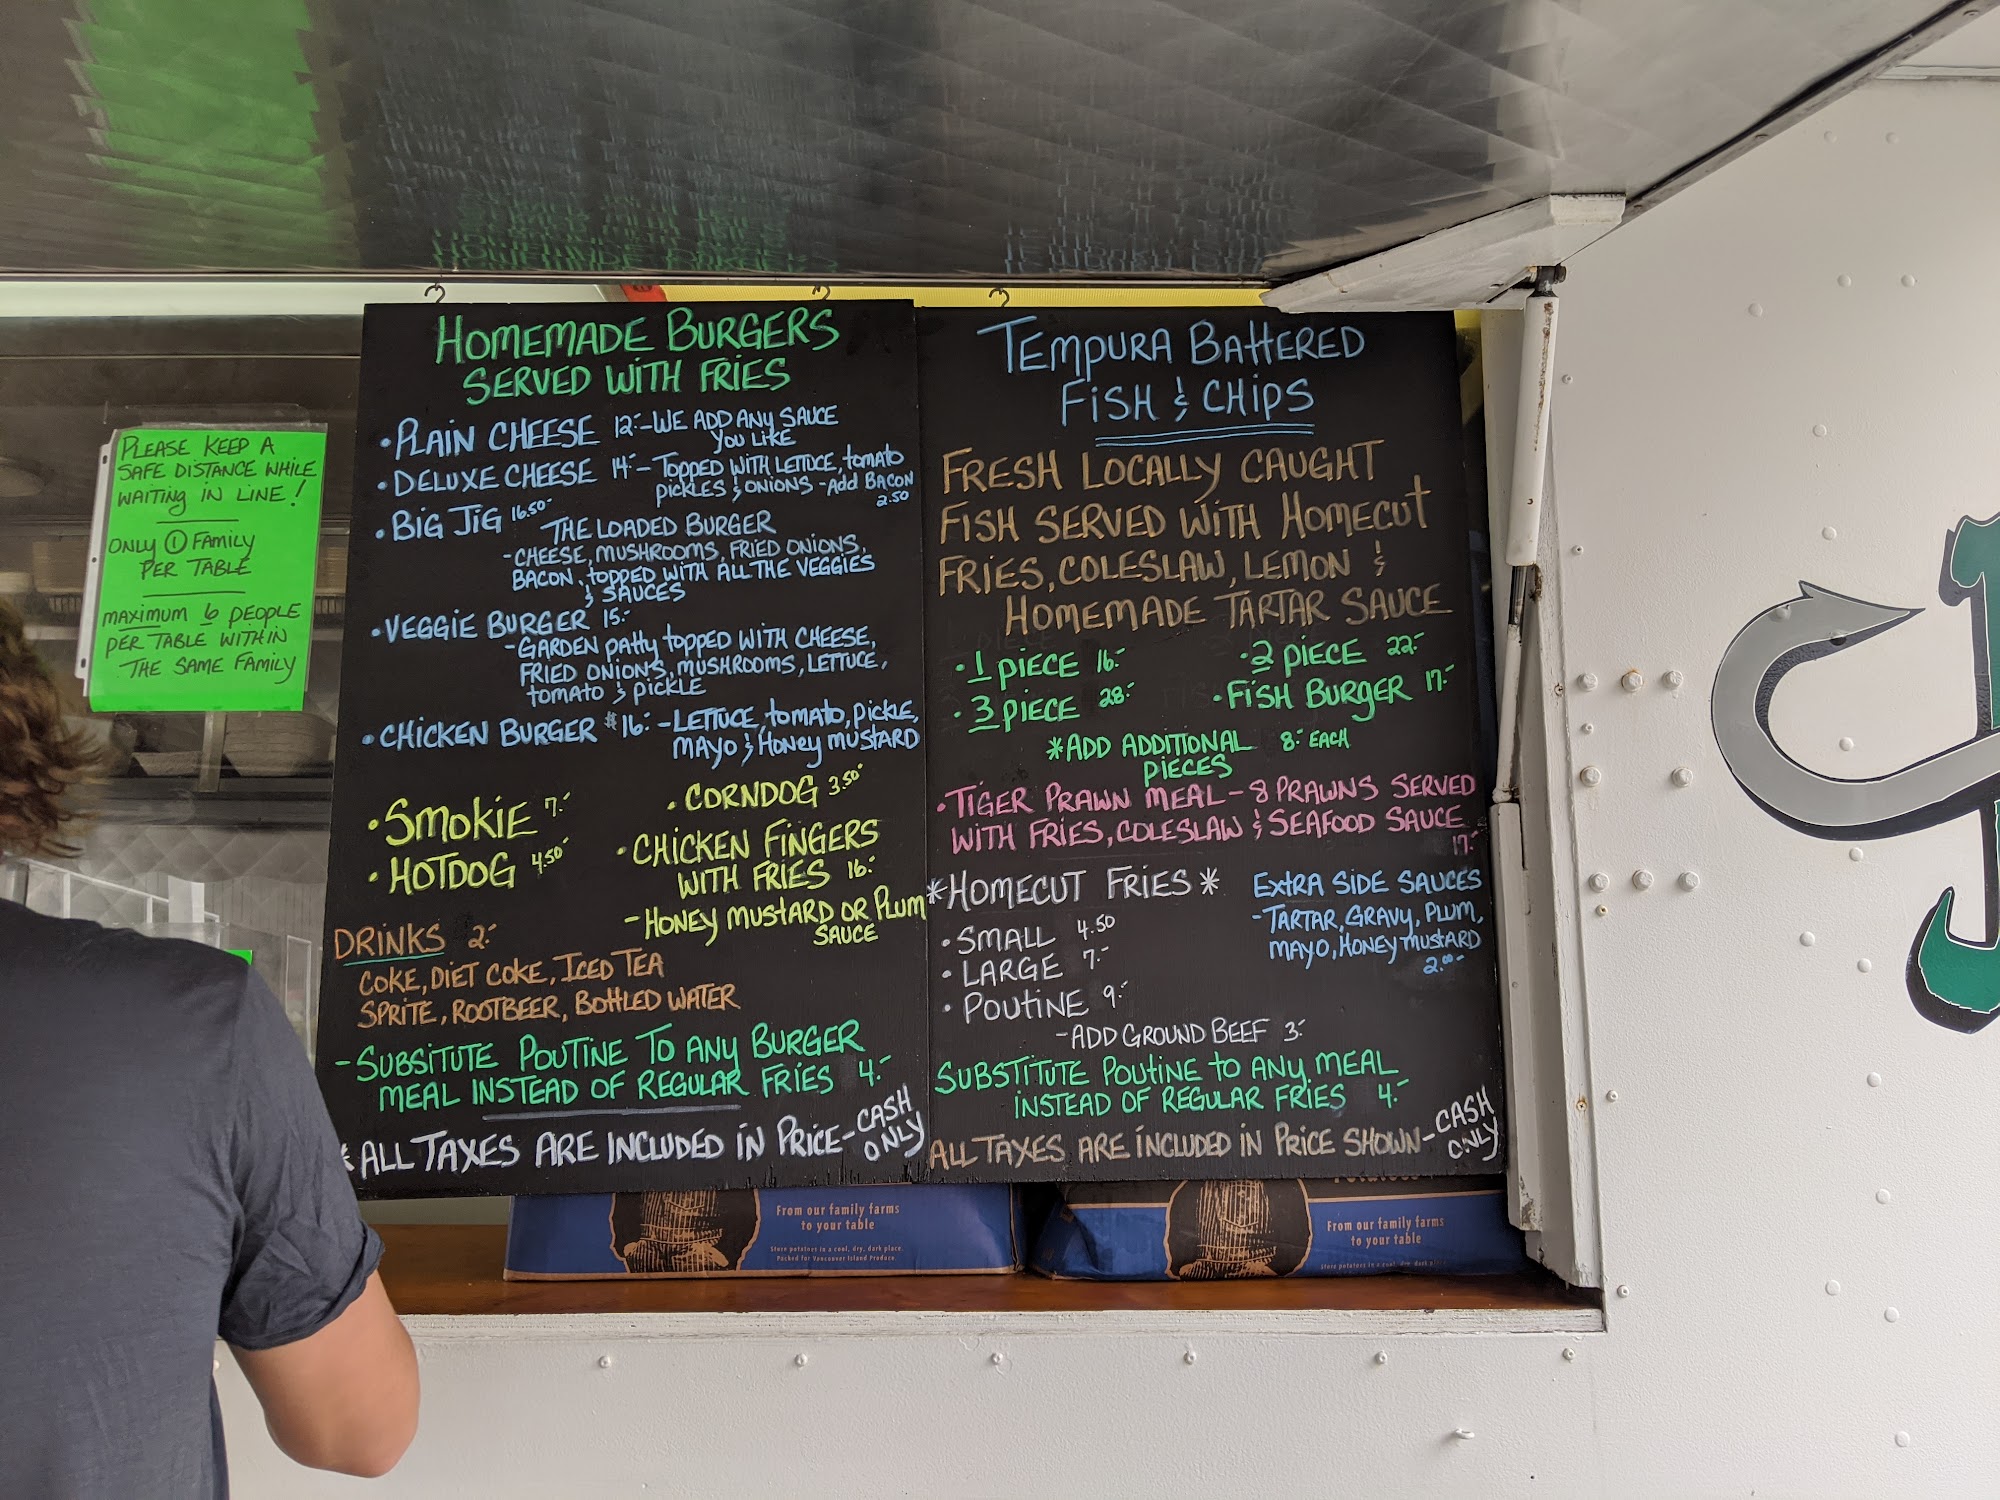 PLEASE KEEP A
SAFE DISTANCE WHILE
WAITING IN LINE!
ONLY 1 FAMILY
PER TABLE
MAXIMUM 6 PEOPLE
PER TABLE WITHIN
THE SAME FAMILY
HOMEMADE BURGERS
SERVED WITH FRIES
• PLAIN CHEESE 12.- - WE ADD ANY SAUCE
YOU LIKE
• DELUXE CHEESE 14.- - TOPPED WITH LETTUCE, TOMATO
PICKLES & ONIONS - ADD BACON
2.50
• BIG JIG 16.50
THE LOADED BURGER
- CHEESE, MUSHROOMS, FRIED ONIONS,
BACON, TOPPED WITH ALL THE VEGGIES
& SAUCES
• VEGGIE BURGER 15.-
- GARDEN PATTY TOPPED WITH CHEESE,
FRIED ONIONS, MUSHROOMS, LETTUCE,
TOMATO & PICKLE
• CHICKEN BURGER $16.- - LETTUCE, TOMATO, PICKLE,
MAYO & HONEY MUSTARD
• SMOKIE 7.-
• HOTDOG 4.50
• CORNDOG 3.50
• CHICKEN FINGERS
WITH FRIES 16.-
- HONEY MUSTARD OR PLUM
SAUCE
DRINKS 2.-
COKE, DIET COKE, ICED TEA
SPRITE, ROOTBEER, BOTTLED WATER
- SUBSITUTE POUTINE TO ANY BURGER
MEAL INSTEAD OF REGULAR FRIES 4.-
* ALL TAXES ARE INCLUDED IN PRICE - CASH
ONLY
TEMPURA BATTERED
FISH & CHIPS
FRESH LOCALLY CAUGHT
FISH SERVED WITH HOMECUT
FRIES, COLESLAW, LEMON &
HOMEMADE TARTAR SAUCE
• 1 PIECE 16.- • 2 PIECE 22.-
• 3 PIECE 28.- • FISH BURGER 17.-
* ADD ADDITIONAL 8.- EACH
PIECES
• TIGER PRAWN MEAL - 8 PRAWNS SERVED
WITH FRIES, COLESLAW & SEAFOOD SAUCE
17.-
* HOMECUT FRIES *
• SMALL 4.50
• LARGE 7.-
• POUTINE 9.-
- ADD GROUND BEEF 3.-
EXTRA SIDE SAUCES
- TARTAR, GRAVY, PLUM,
MAYO, HONEY MUSTARD
2.00-
SUBSTITUTE POUTINE TO ANY MEAL
INSTEAD OF REGULAR FRIES 4.-
ALL TAXES ARE INCLUDED IN PRICE SHOWN - CASH
ONLY
From our family farms
to your table
Store potatoes in a cool, dry, dark place.
Packed for Vancouver Island Produce.
From our family farms
to your table
Store potatoes in a cool, dry, dark